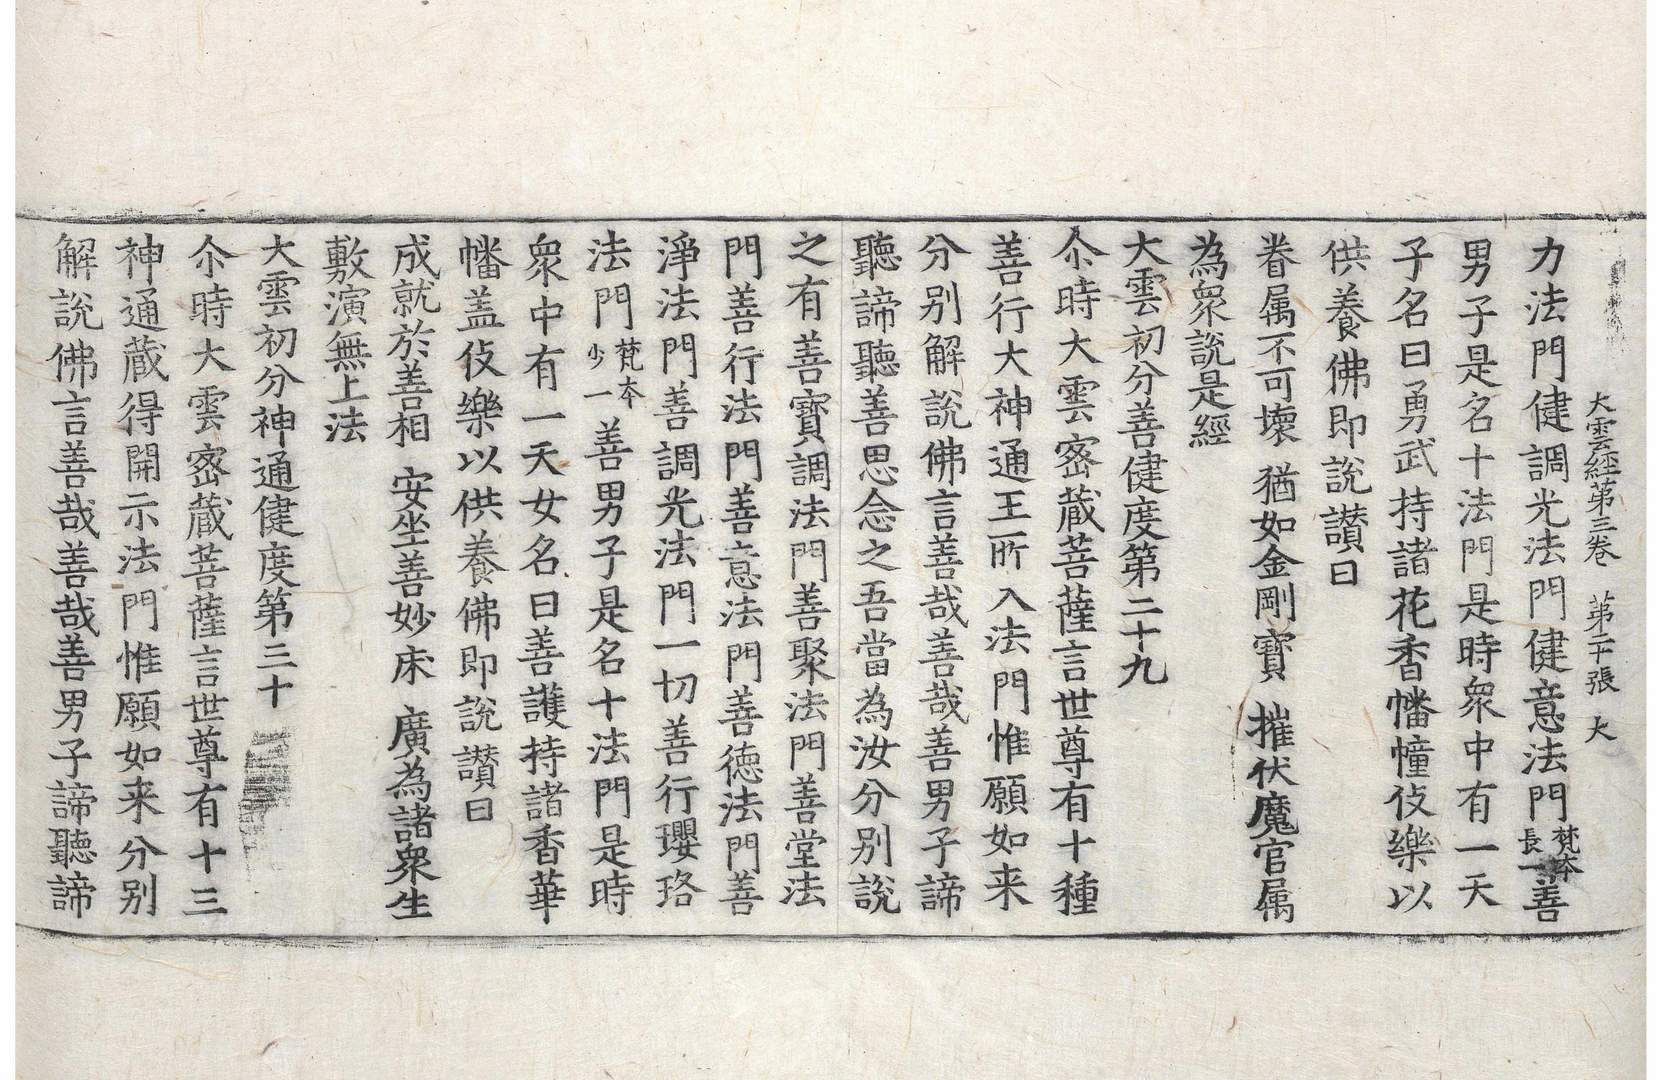 大雲經第三卷 第二十張 大
力法門健調光法門健意法門梵本長一善
男子是名十法門是時衆中有一天
子名曰勇武持諸花香幡幢伎樂以
供養佛即說讃曰
眷属不可壞 猶如金剛寶 摧伏魔官属
為衆說是經
大雲初分善健度第二十九
尒時大雲宻蔵菩薩言世尊有十種
善行大神通王所入法門惟願如来
分別解說佛言善哉善哉善男子諦
聽諦聽善思念之吾當為汝分別說
之有善寶調法門善聚法門善堂法
門善行法門善意法門善德法門善
淨法門善調光法門一切善行瓔珞
法門梵本少一善男子是名十法門是時
衆中有一天女名曰善護持諸香華
幡盖伎樂以供養佛即說讃曰
成就於善相 安坐善妙床 廣為諸衆生
敷演無上法
大雲初分神通健度第三十
尒時大雲宻蔵菩薩言世尊有十三
神通蔵得開示法門惟願如来分別
解說佛言善哉善哉善男子諦聽諦